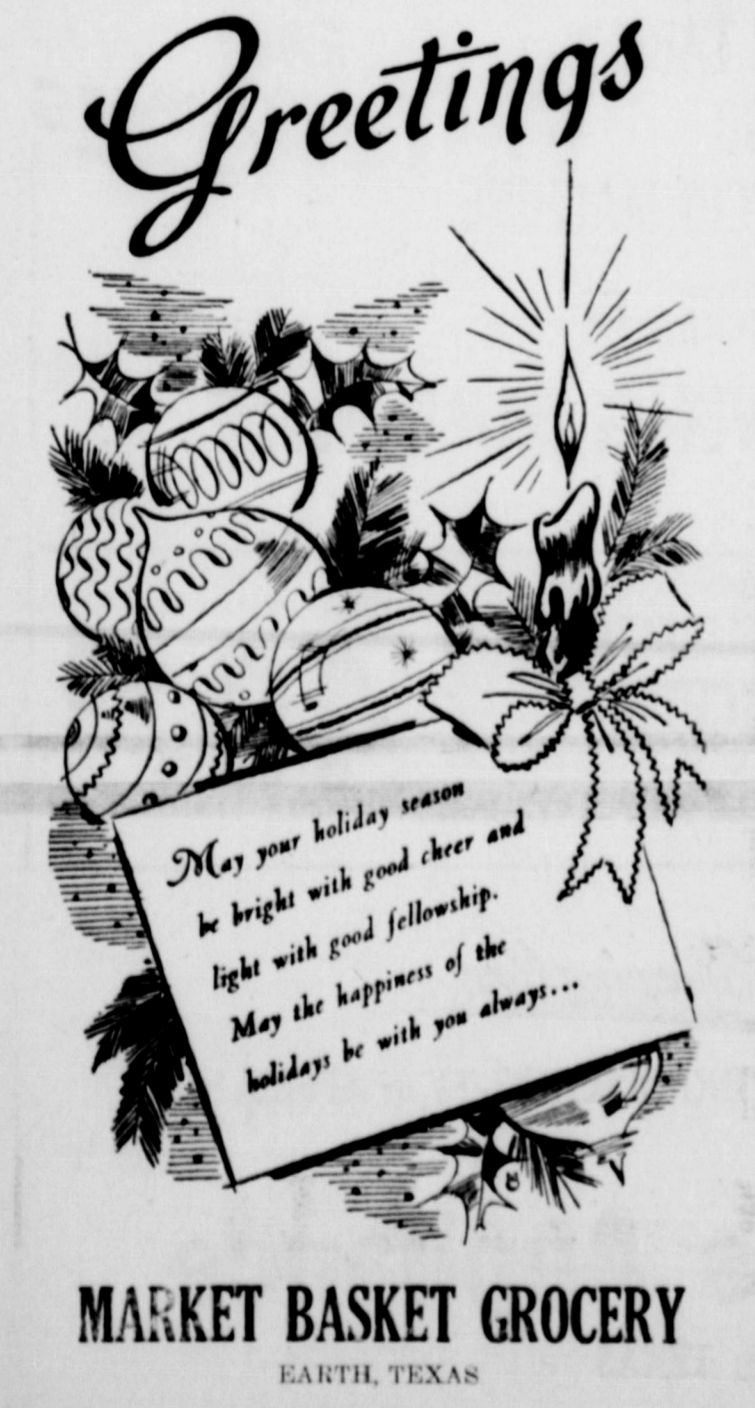 Greetings
May your holiday season
be bright with good cheer and
light with good fellowship.
May the happiness of the
holidays be with you always...
MARKET BASKET GROCERY
EARTH, TEXAS